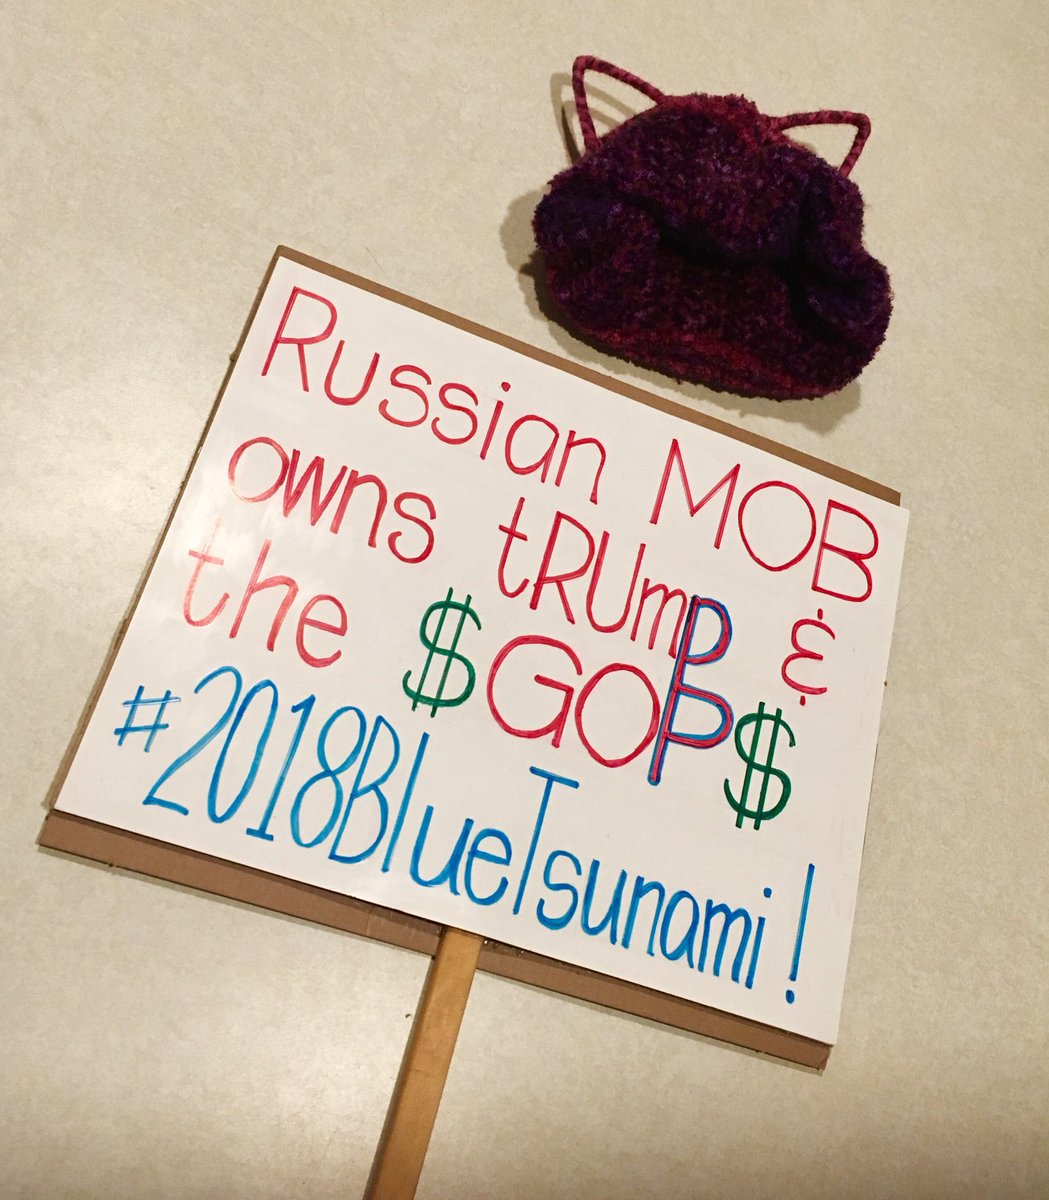 Russian MOB
owns tRUmp &
the $GOP$
#2018BlueTsunami!